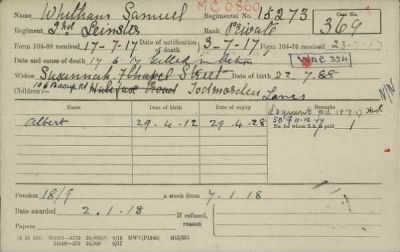 MC 0860
Name Whitham Samuel Regimental No. 15273 Case No. 364
Regiment 2nd Leinsters Rank Private
Form 104-88 received 17-7-17 Date of notification of death 3-7-17 Form 104-76 received 23-7-17
Date and cause of death 17 6 17 Killed in Action
Widow Susannah, 7 Chapel Street Date of birth 22.7.88
Children:— Todmorden Lancs
Remarks
No. for whom S.A. is paid 1
Albert 29-4-12 29-4-28
Pension 18/9 a week from 7.1.18
Date awarded 2.1.18 If refused, reason
Papers